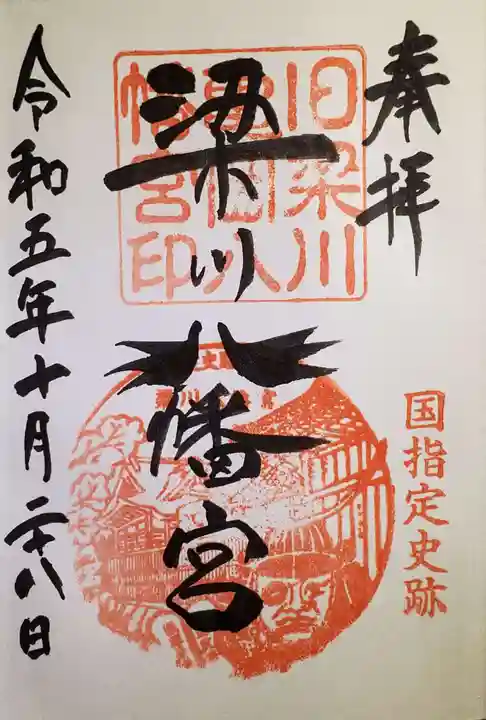 奉拝
国指定史跡
旧梁川
亀岡八
幡宮印
梁川八幡宮
令和五年十月二十八日